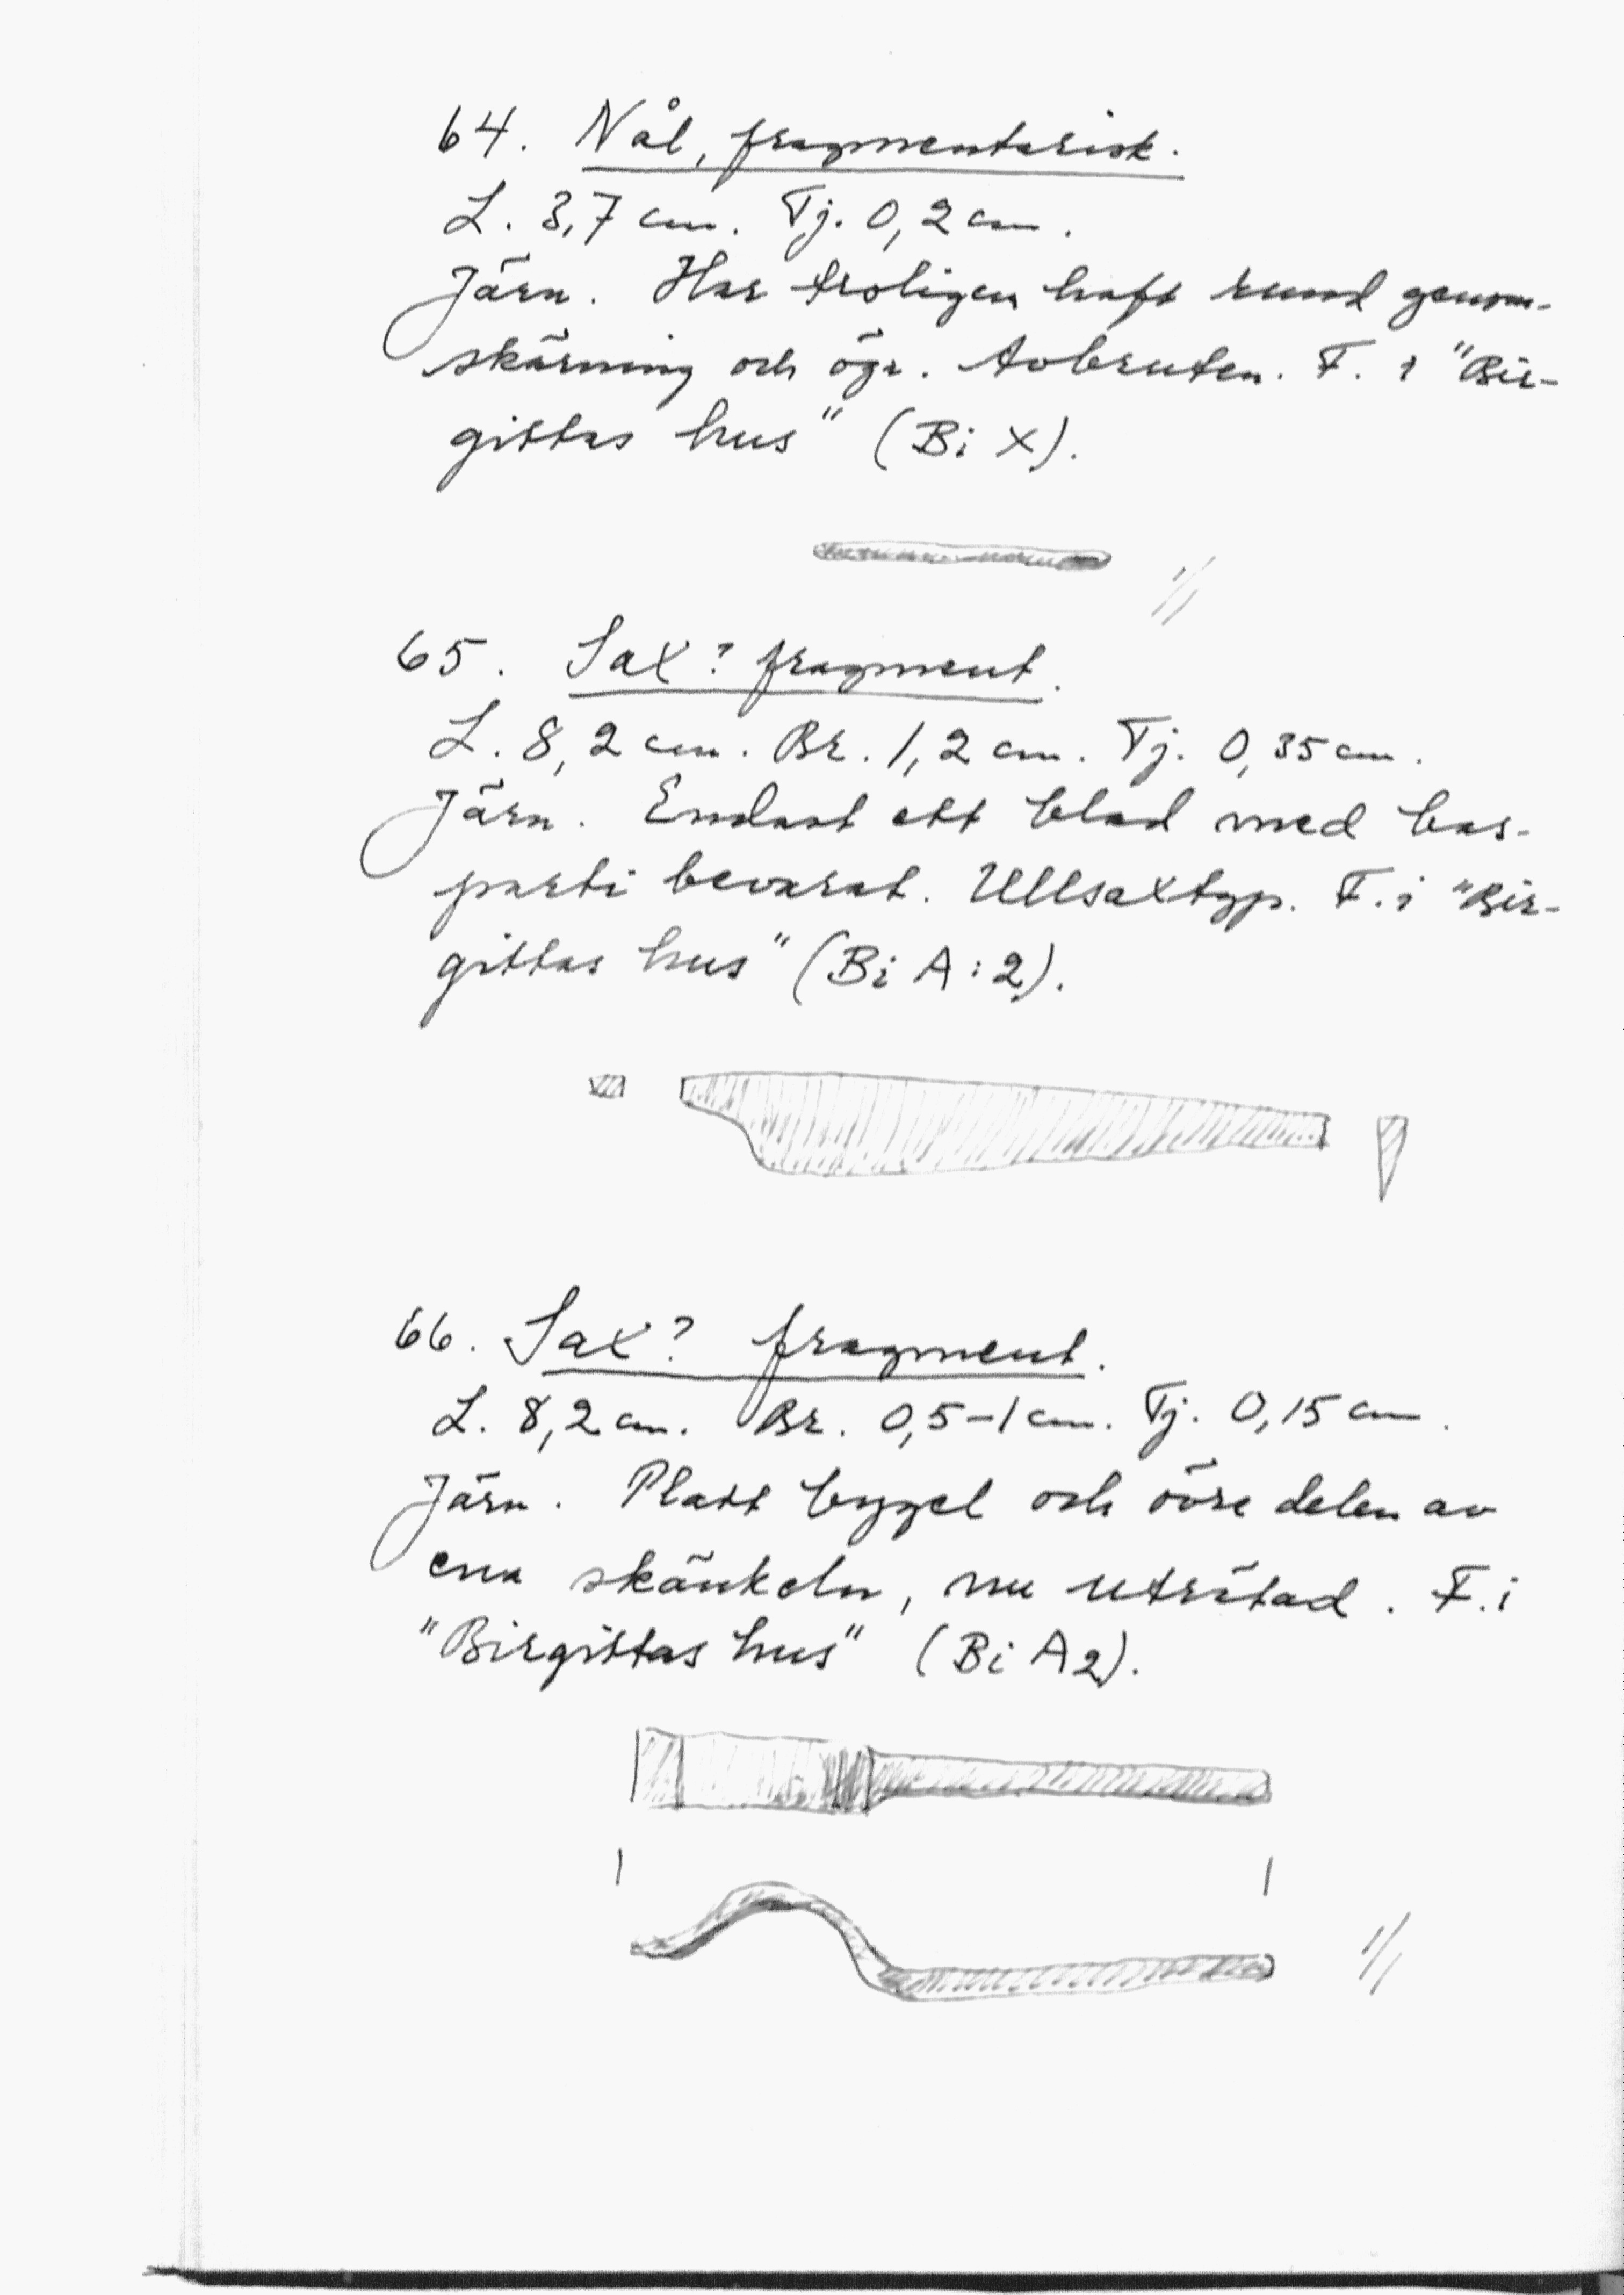 64. Nål, fragmentarisk.
L. 3,7 cm. Tj. 0,2 cm.
Järn. Har troligen haft rund genom-
skärning och öga. Avbruten. F. i "Bir-
gittas hus" (Bi X).
1/1
65. Sax? fragment.
L. 8,2 cm. Br. 1,2 cm. Tj. 0,35 cm.
Järn. Endast ett blad med bas-
parti bevarat. Ullsaxtyp. F. i "Bir-
gittas hus" (Bi A:2).
66. Sax? fragment.
L. 8,2 cm. Br. 0,5-1 cm. Tj. 0,15 cm.
Järn. Platt bygel och övre delen av
ena skänkeln, nu uträtad. F. i
"Birgittas hus" (Bi A2).
1/1